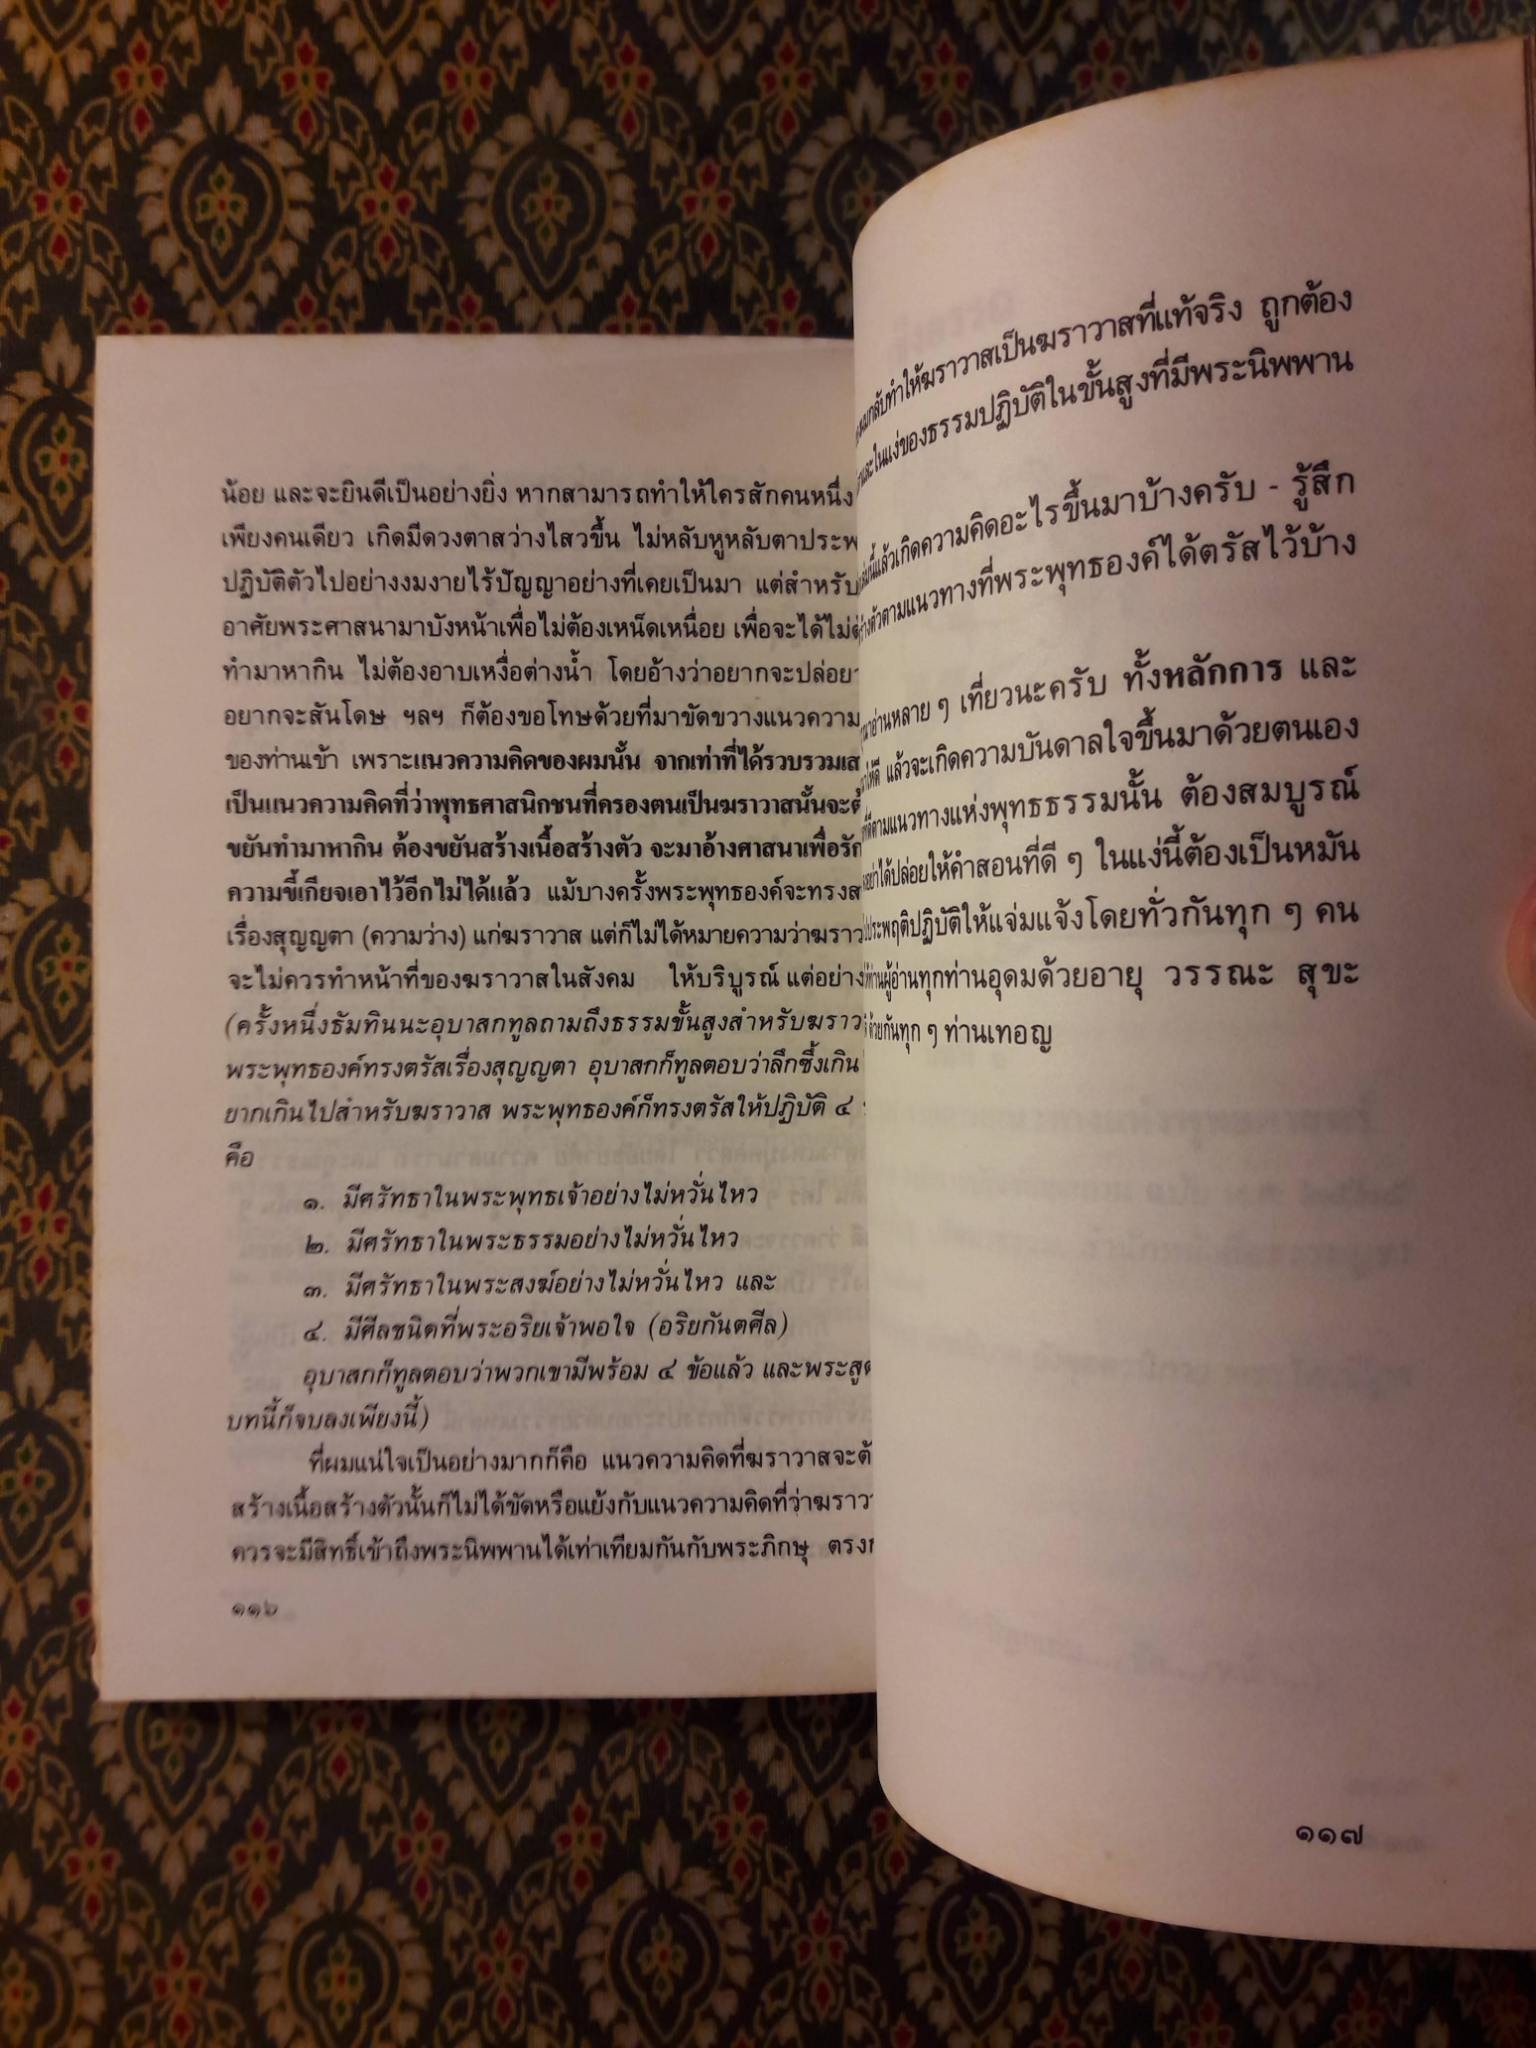 น้อย และจะยินดีเป็นอย่างยิ่ง หากสามารถทำให้ใครสักคนหนึ่ง
เพียงคนเดียว เกิดมีดวงตาสว่างไสวขึ้น ไม่หลับหูหลับตาประพ
ปฏิบัติตัวไปอย่างงมงายไร้ปัญญาอย่างที่เคยเป็นมา แต่สำหรับ
อาศัยพระศาสนามาบังหน้าเพื่อไม่ต้องเหน็ดเหนื่อย เพื่อจะได้ไม่
ทำมาหากิน ไม่ต้องอาบเหงื่อต่างน้ำ โดยอ้างว่าอยากจะปล่อยว
อยากจะสันโดษ ฯลฯ ก็ต้องขอโทษด้วยที่มาขัดขวางแนวความ
ของท่านเข้า เพราะแนวความคิดของผมนั้น จากเท่าที่ได้รวบรวมเส
เป็นแนวความคิดที่ว่าพุทธศาสนิกชนที่ครองตนเป็นฆราวาสนั้นจะต้
ขยันทำมาหากิน ต้องขยันสร้างเนื้อสร้างตัว จะมาอ้างศาสนาเพื่อรัก
ความขี้เกียจเอาไว้อีกไม่ได้แล้ว แม้บางครั้งพระพุทธองค์จะทรงส
เรื่องสุญญตา (ความว่าง) แก่ฆราวาส แต่ก็ไม่ได้หมายความว่าฆราว
จะไม่ควรทำหน้าที่ของฆราวาสในสังคม ให้บริบูรณ์ แต่อย่าง
(ครั้งหนึ่งธัมทินนะอุบาสกทูลถามถึงธรรมขั้นสูงสำหรับฆราว
พระพุทธองค์ทรงตรัสเรื่องสุญญตา อุบาสกก็ทูลตอบว่าลึกซึ้งเกิน
ยากเกินไปสำหรับฆราวาส พระพุทธองค์ก็ทรงตรัสให้ปฏิบัติ ๔
คือ
๑. มีศรัทธาในพระพุทธเจ้าอย่างไม่หวั่นไหว
๒. มีศรัทธาในพระธรรมอย่างไม่หวั่นไหว
๓. มีศรัทธาในพระสงฆ์อย่างไม่หวั่นไหว และ
๔. มีศีลชนิดที่พระอริยเจ้าพอใจ (อริยกันตศีล)
อุบาสกก็ทูลตอบว่าพวกเขามีพร้อม ๔ ข้อแล้ว และพระสูต
บทนี้ก็จบลงเพียงนี้)
ที่ผมแน่ใจเป็นอย่างมากก็คือ แนวความคิดที่ฆราวาสจะต้
สร้างเนื้อสร้างตัวนั้นก็ไม่ได้ขัดหรือแย้งกับแนวความคิดที่ว่าฆราว
ควรจะมีสิทธิ์เข้าถึงพระนิพพานได้เท่าเทียมกันกับพระภิกษุ ตรง
๑๑๖
กลับทำให้ฆราวาสเป็นฆราวาสที่แท้จริง ถูกต้อง
และในแง่ของธรรมปฏิบัติในขั้นสูงที่มีพระนิพพาน
นี้แล้วเกิดความคิดอะไรขึ้นมาบ้างครับ - รู้สึก
ตัวตามแนวทางที่พระพุทธองค์ได้ตรัสไว้บ้าง
อ่านหลาย ๆ เที่ยวนะครับ ทั้งหลักการ และ
ให้ดี แล้วจะเกิดความบันดาลใจขึ้นมาด้วยตนเอง
ที่ดีตามแนวทางแห่งพุทธธรรมนั้น ต้องสมบูรณ์
อย่าได้ปล่อยให้คำสอนที่ดี ๆ ในแง่นี้ต้องเป็นหมัน
ประพฤติปฏิบัติให้แจ่มแจ้งโดยทั่วกันทุก ๆ คน
ให้ท่านผู้อ่านทุกท่านอุดมด้วยอายุ วรรณะ สุขะ
ด้วยกันทุก ๆ ท่านเทอญ
๑๑๗